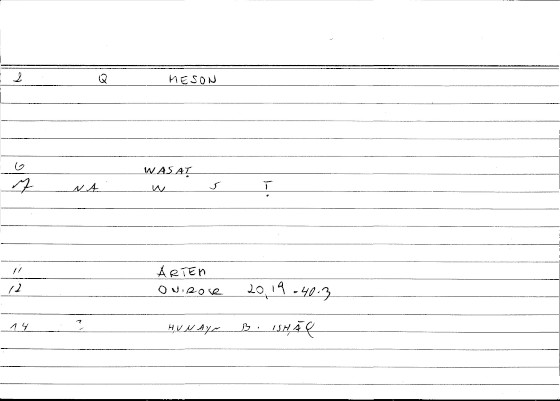 2 Q MESON
6 WASAṬ
7 NA W S Ṭ
11 ARTEM
12 ON-ROCR 20,19-40.3
14 : ḤUNAYN B. ISḤĀQ